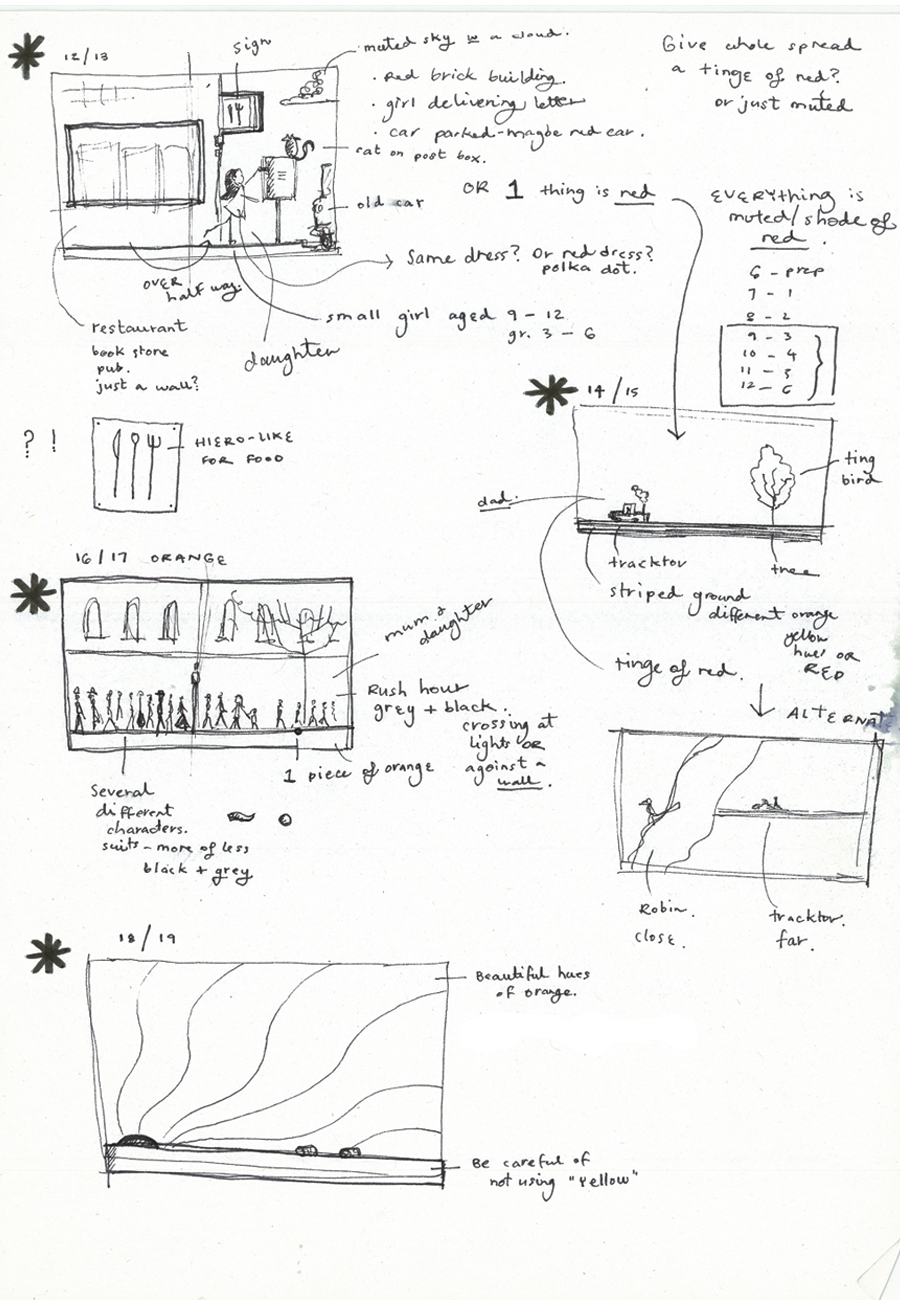 12/13
sign
muted sky w a cloud.
· red brick building.
· girl delivering letter
· car parked - maybe red car.
cat on post box.
old car
Give whole spread
a tinge of red?
or just muted
OR 1 thing is red
EVERYthing is
muted/shade of
red.
6 - prep
7 - 1
8 - 2
9 - 3
10 - 4
11 - 5
12 - 6
Same dress? Or red dress?
polka dot.
OVER
half way.
small girl aged 9 - 12
gr. 3 - 6
daughter
restaurant
book store
pub.
just a wall?
? !
HIERO-LIKE
FOR FOOD
14/15
ting
bird
dad.
tracktor
tree
striped ground
different orange
yellow
hues OR
RED
tinge of red.
ALTERNAT
Robin.
close.
tracktor.
far.
16/17 ORANGE
mum &
daughter
Rush hour
grey + black.
crossing at
lights OR
against a
wall.
1 piece of orange
Several
different
charaders.
suits - more of less
black + grey
18/19
Beautiful hues
of orange.
Be careful of
not using "Yellow"